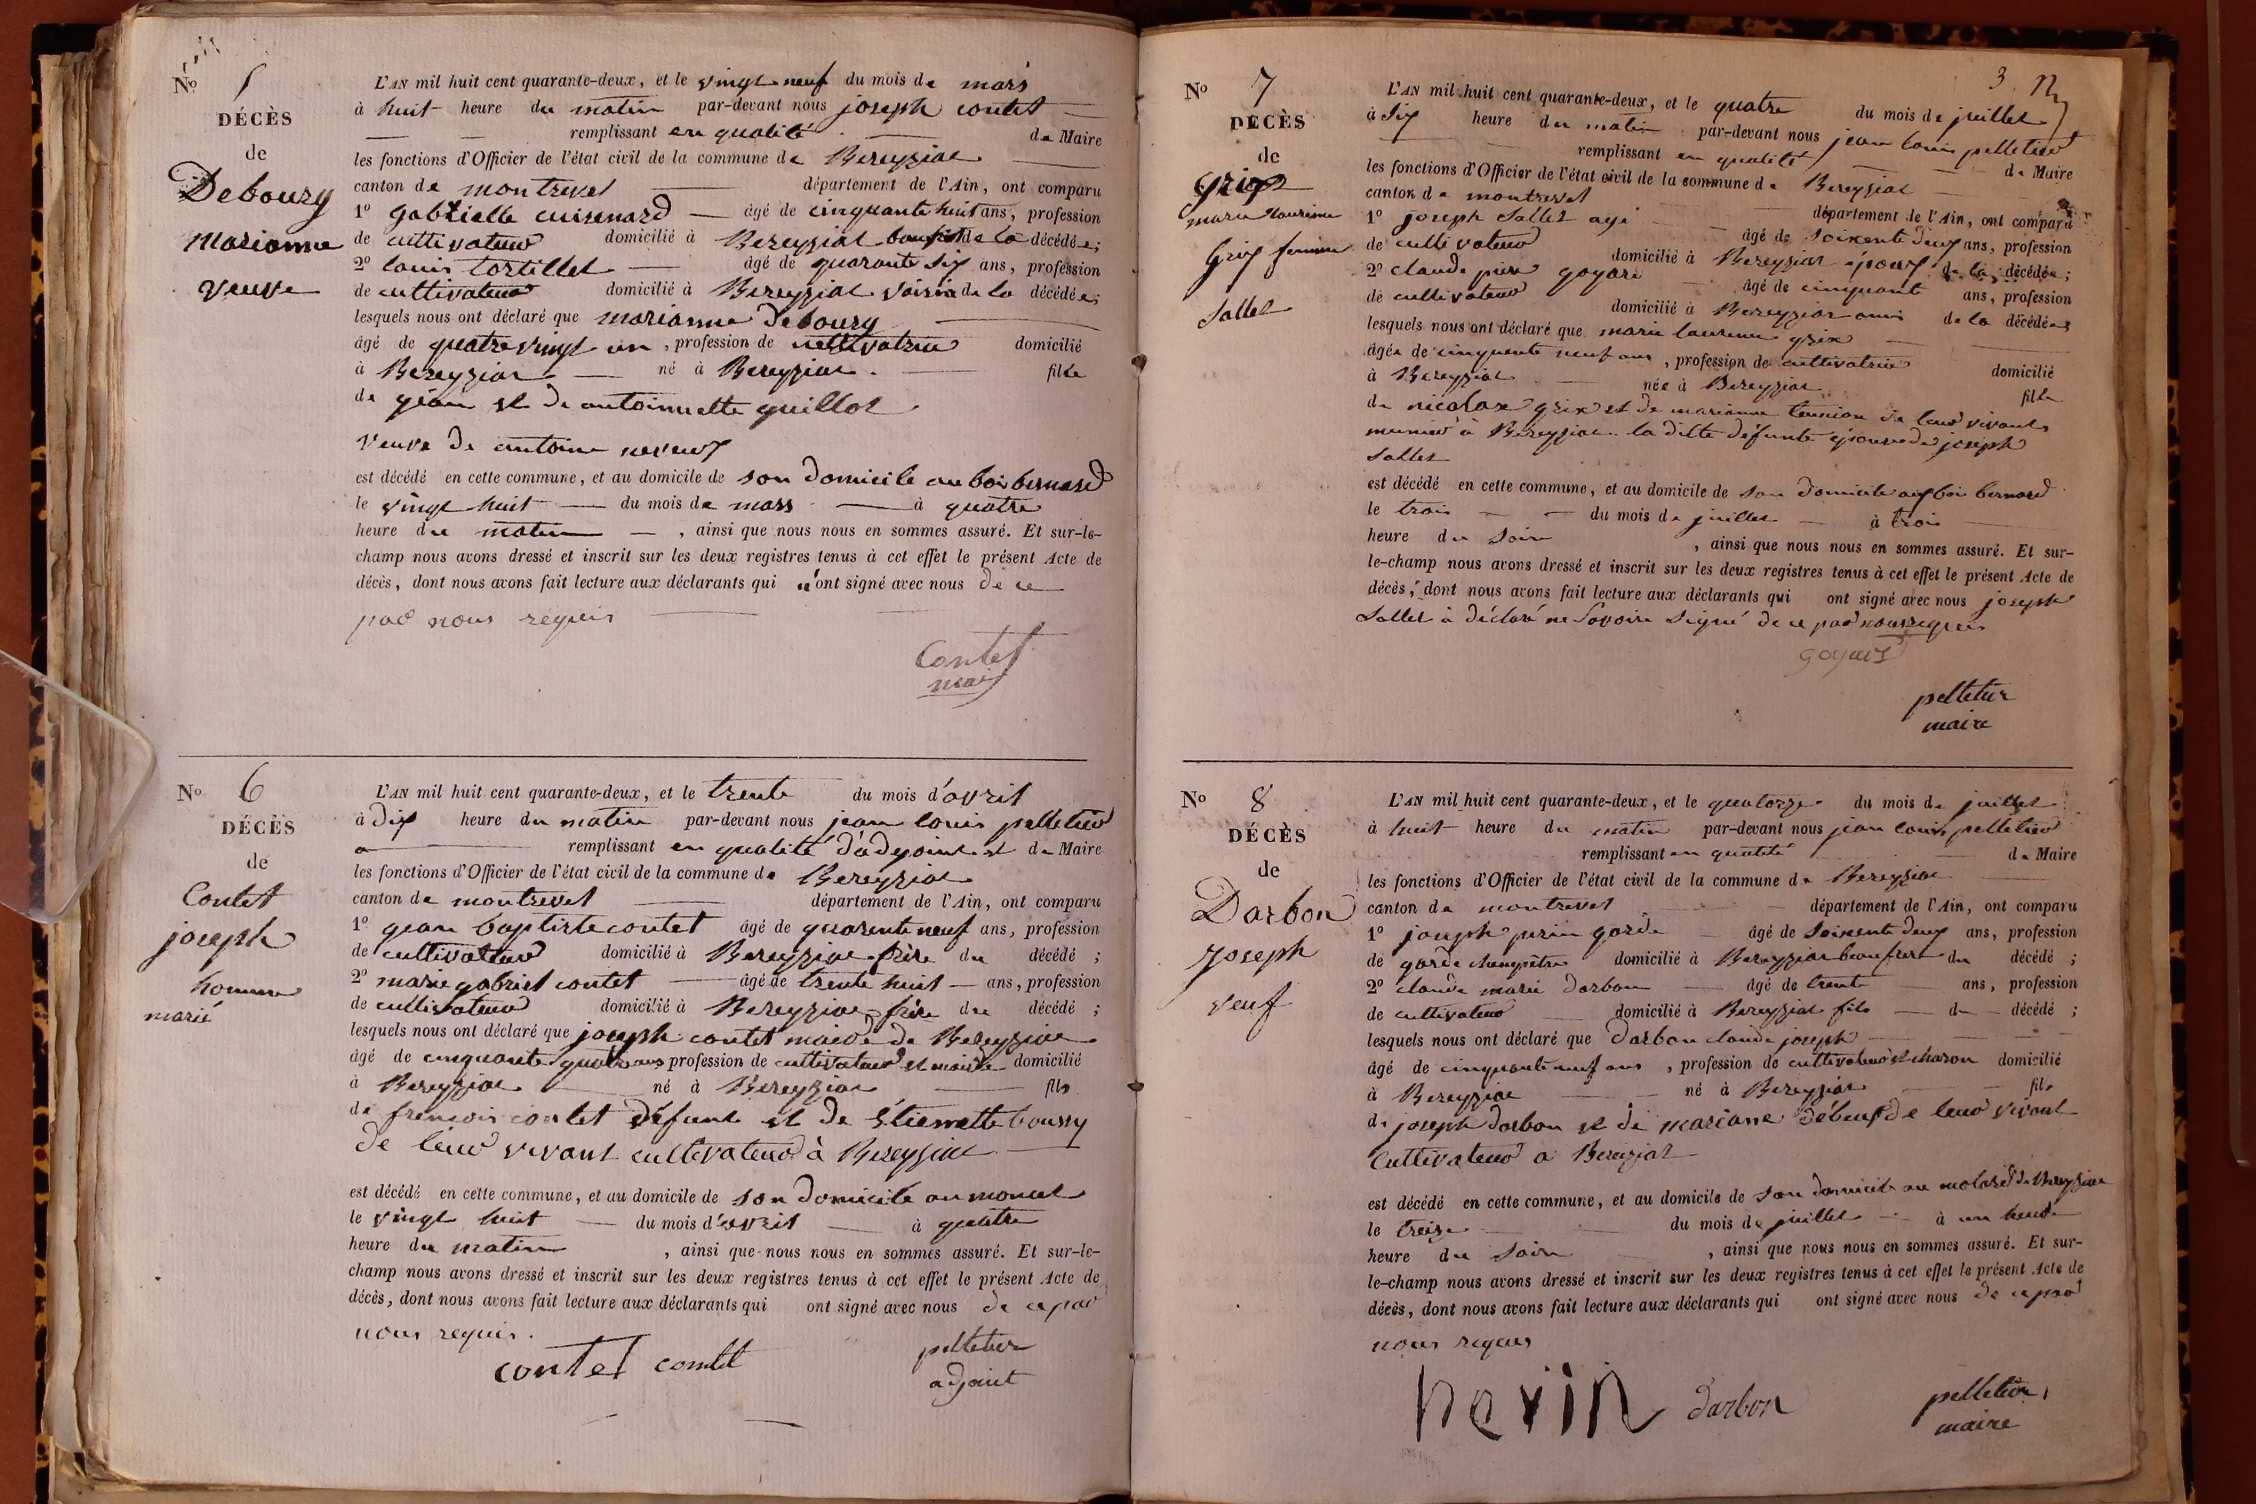 No 5
DÉCÈS
de
Debourg
marianne
veuve
L'AN mil huit cent quarante-deux, et le vingt neuf du mois de mars
à huit heure du matin par-devant nous joseph contet
remplissant en qualité de Maire
les fonctions d'Officier de l'état civil de la commune de Bereyziat
canton de montrevel département de l'Ain, ont comparu
1o gabrielle cuisenard âgé de cinquante huit ans, profession
de cultivateur domicilié à Bereyziat de la décédée;
2o louis tortillet âgé de quarante six ans, profession
de cultivateur domicilié à Bereyziat voisin de la décédée;
lesquels nous ont déclaré que marianne debourg
âgé de quatre vingt un, profession de cultivatrice domicilié
à Bereyziat né à Bereyziat fille
de géan et de antoinette guillot
veuve de antoine neveux
est décédé en cette commune, et au domicile de son domicile au bois bernard
le vingt huit du mois de mars à quatre
heure du matin, ainsi que nous nous en sommes assuré. Et sur-le-
champ nous avons dressé et inscrit sur les deux registres tenus à cet effet le présent Acte de
décès, dont nous avons fait lecture aux déclarants qui n'ont signé avec nous de ce
par nous requis
Contet
maire
No 6
DÉCÈS
de
Contet
joseph
homme
marié
L'AN mil huit cent quarante-deux, et le trente du mois d'avril
à dix heure du matin par-devant nous jean louis pelletier
remplissant en qualité d'adyoint et de Maire
les fonctions d'Officier de l'état civil de la commune de Bereyziat
canton de montrevel département de l'Ain, ont comparu
1o gean baptiste contet âgé de quarente neuf ans, profession
de cultivateur domicilié à Bereyziat frère du décédé;
2o marie gabriel contet âgé de trente huit ans, profession
de cultivateur domicilié à Bereyziat frère du décédé;
lesquels nous ont déclaré que joseph contet maire de Bereyziat
âgé de cinquante quatre ans profession de cultivateur et maire domicilié
à Bereyziat né à Bereyziat fils
de francois contet défunt et de Étiennette boussy
de leur vivant cultivateur à Bereyziat
est décédé en cette commune, et au domicile de son domicile au moncel
le vingt huit du mois d'avril à quatre
heure du matin, ainsi que nous nous en sommes assuré. Et sur-le-
champ nous avons dressé et inscrit sur les deux registres tenus à cet effet le présent Acte de
décès, dont nous avons fait lecture aux déclarants qui ont signé avec nous de ce par
nous requis.
contet contet pelletier
adjoint
3
No 7
DÉCÈS
de
Grix
marie laurence
Grix femme
Sallet
L'AN mil huit cent quarante-deux, et le quatre du mois de juillet
à six heure du matin par-devant nous jean louis pelletier
remplissant en qualité de Maire
les fonctions d'Officier de l'état civil de la commune de Bereyziat
canton de montrevel département de l'Ain, ont comparu
1o joseph Sallet agé âgé de soixente deux ans, profession
de cultivateur domicilié à Bereyziat époux de la décédée;
2o claude pière goyard âgé de cinquant ans, profession
de cultivateur domicilié à Bereyziat amis de la décédée;
lesquels nous ont déclaré que marie laurence grix
âgée de cinquante neuf ans, profession de cultivatrice domicilié
à Bereyziat née à Bereyziat fille
de nicolas grix et de marianne de leur vivant
munier à Bereyziat la ditte défunte épouse de joseph
Sallet
est décédé en cette commune, et au domicile de son domicile aux bois bernard
le trois du mois de juillet à trois
heure du soir, ainsi que nous nous en sommes assuré. Et sur-
le-champ nous avons dressé et inscrit sur les deux registres tenus à cet effet le présent Acte de
décès, dont nous avons fait lecture aux déclarants qui ont signé avec nous joseph
Sallet à déclaré ne savoire signé de ce par nous requis
goyard
pelletier
maire
No 8
DÉCÈS
de
Darbon
Joseph
veuf
L'AN mil huit cent quarante-deux, et le quatorze du mois de juillet
à huit heure du matin par-devant nous jean louis pelletier
remplissant en qualité de Maire
les fonctions d'Officier de l'état civil de la commune de Bereyziat
canton de montrevel département de l'Ain, ont comparu
1o joseph garde âgé de soixente deux ans, profession
de garde champêtre domicilié à Bereyziat beau frere du décédé;
2o claude marie darbon âgé de trente ans, profession
de cultivateur domicilié à Bereyziat fils du décédé;
lesquels nous ont déclaré que darbon claude joseph
âgé de cinquante neuf ans, profession de cultivateur et charon domicilié
à Bereyziat né à Bereyziat fils
de joseph darbon et de mariane débeuf de leur vivant
Cultivateur a Bereiziat
est décédé en cette commune, et au domicile de son domicile au molard de Bereyziat
le treize du mois de juillet à un heure
heure du soir, ainsi que nous nous en sommes assuré. Et sur-
le-champ nous avons dressé et inscrit sur les deux registres tenus à cet effet le présent Acte de
décès, dont nous avons fait lecture aux déclarants qui ont signé avec nous de ce par
nous requis
darbon pelletier
maire